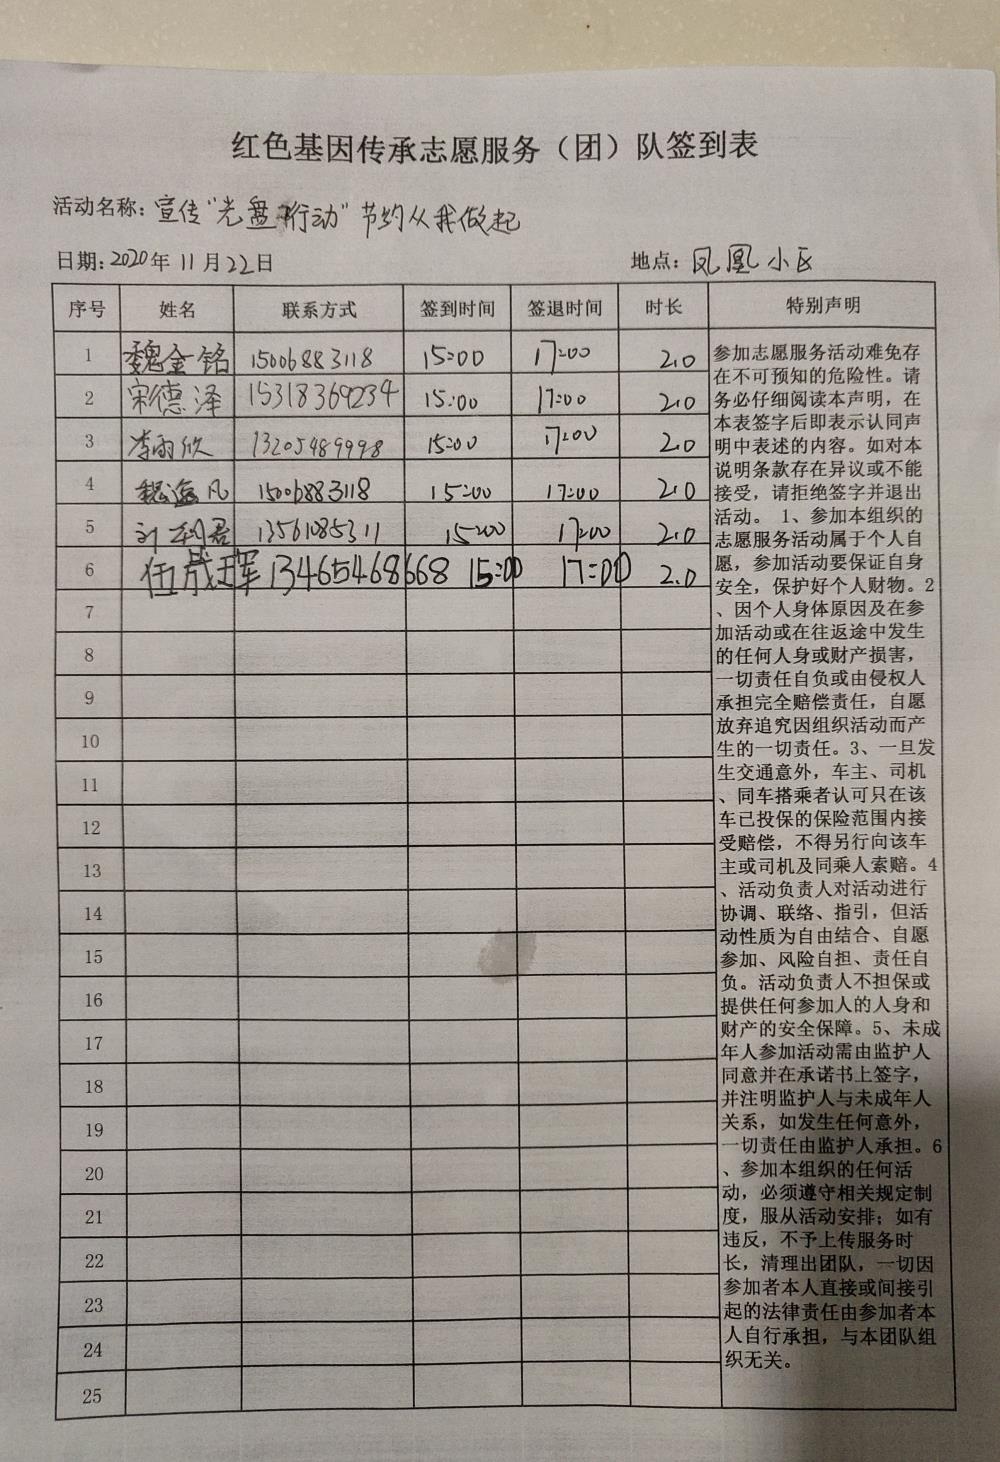 红色基因传承志愿服务（团）队签到表
活动名称：宣传"光盘行动"节约从我做起
日期：2020年11月22日 地点：凤凰小区
序号 姓名 联系方式 签到时间 签退时间 时长 特别声明
1 魏金铭 15006883118 15:00 17:00 2.0
2 宋德泽 15318369234 15:00 17:00 2.0
3 李雨欣 13205489998 15:00 17:00 2.0
4 魏逸凡 15006883118 15:00 17:00 2.0
5 刘利君 13561085311 15:00 17:00 2.0
6 伍晟玮 13465468668 15:00 17:00 2.0
7
8
9
10
11
12
13
14
15
16
17
18
19
20
21
22
23
24
25
参加志愿服务活动难免存
在不可预知的危险性。请
务必仔细阅读本声明，在
本表签字后即表示认同声
明中表述的内容。如对本
说明条款存在异议或不能
接受，请拒绝签字并退出
活动。 1、参加本组织的
志愿服务活动属于个人自
愿，参加活动要保证自身
安全，保护好个人财物。2
、因个人身体原因及在参
加活动或在往返途中发生
的任何人身或财产损害，
一切责任自负或由侵权人
承担完全赔偿责任，自愿
放弃追究因组织活动而产
生的一切责任。3、一旦发
生交通意外，车主、司机
、同车搭乘者认可只在该
车已投保的保险范围内接
受赔偿，不得另行向该车
主或司机及同乘人索赔。4
、活动负责人对活动进行
协调、联络、指引，但活
动性质为自由结合、自愿
参加、风险自担、责任自
负。活动负责人不担保或
提供任何参加人的人身和
财产的安全保障。5、未成
年人参加活动需由监护人
同意并在承诺书上签字，
并注明监护人与未成年人
关系，如发生任何意外，
一切责任由监护人承担。6
、参加本组织的任何活
动，必须遵守相关规定制
度，服从活动安排；如有
违反，不予上传服务时
长，清理出团队，一切因
参加者本人直接或间接引
起的法律责任由参加者本
人自行承担，与本团队组
织无关。